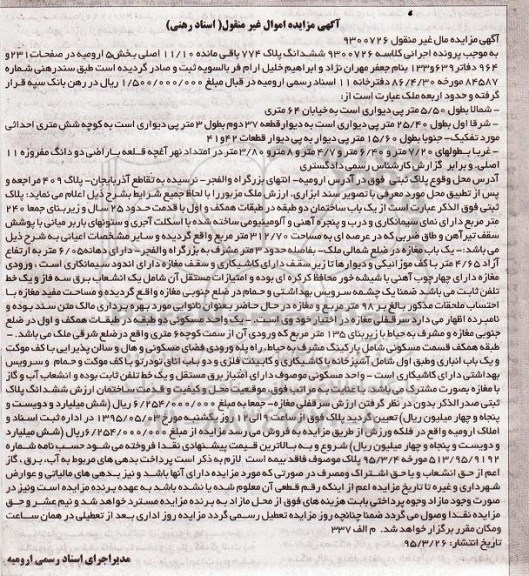 آگهی مزایده اموال غیر منقول( اسناد رهنی)
آگهی مزایده مال غیر منقول ۹۳۰۰۷۲۶
به موجب پرونده اجرائی کلاسه ۹۳۰۰۷۲۶ ششدانگ پلاک ۷۷۴ باقی مانده ۱۱/۱۰ اصلی بخش۵ ارومیه در صفحات۲۳۱و
۹۶۴ دفاتر۶۳۹و۱۲۳ بنام جعفر مهران نژاد و ابراهیم خلیل ارام فر بالسویه ثبت و صادر گردیده است طبق سندرهنی شماره
۸۴۵۸۷ مورخه ۸۶/۴/۳۰ دفترخانه ۱۱ اسناد رسمی ارومیه در قبال مبلغ ۱/۵۰۰/۰۰۰/۰۰۰ ریال در رهن بانک سپه قرار
گرفته و حدود اربعه ملک عبارت است از:
- شمالا بطول ۵/۵۰ متر پی دیواری است به خیابان ۶۴ متری
- شرقا اول بطول ۲۵/۴۰ متر پی دیواری است به دیوار قطعه ۳۷ دوم بطول ۳ متر پی دیواری است به کوچه شش متری احداثی
مورد تفکیک- جنوبا بطول ۱۵/۶۰ متر پی دیوار به پی دیوار قطعات ۴۲و۴۱
- غربا بطولهای ۷/۲۰ متر و ۶/۴۰ متر و ۴/۷ متر و ۸ متر و ۳/۸۰ متر در امتداد نهر آغچه قلعه باراضی دو دانگ مفروزه ۱۱
اصلی. و برابر گزارش کارشناس رسمی دادگستری
آدرس محل وقوع پلاک ثبتی فوق در آدرس ارومیه- انتهای بزرگراه والفجر- نرسیده به تقاطع آذربایجان- پلاک ۴۰۹ مراجعه و
پس از تطبیق محل مورد معرفی با تصویر سند ابرازی، ارزش ملک مزبور را با لحاظ جمیع شرایط بشرح ذیل اعلام می نماید: پلاک
ثبتی فوق الذکر عبارت است از یک باب ساختمان دو طبقه در طبقات همکف و اول با قدمت حدود ۲۵ سال و زیربنای جمعا ۲۴۰
متر مربع دارای نمای سیمانکاری و درب و پنجره آهنی و آلومینیومی ساخته شده با اسکلت آجری و ستونهای باربر میانی با پوشش
سقف تیر آهن و طاق ضربی که در عرصه ای به مساحت ۳۱۲/۷۰ متر مربع واقع گردیده و سایر مشخصات اعیانی به شرح ذیل
می باشد:- یک باب مغازه در ضلع شمالی ملک- بفاصله حدود ۳ متر مشرف به بزرگراه والفجر- دارای دهانه ۶/۰۵ متر به ارتفاع
آزاد ۴/۶۵ متر با کف موزائیکی و دیوارها تا زیر سقف دارای کاشیکاری و سقف مغازه دارای اندود سیمانکاری است - ورودی
مغازه دارای چهارچوب آهنی با شیشه خور محافظ کرکره ای بوده و امتیازات مستقل آن شامل یک انشعاب برق سه فاز و یک خط
تلفن ثابت می باشد ضمنا یک چشمه سرویس بهداشتی و حمام در ضلع جنوبی مغازه و واقع گردیده و مساحت مفید مغازه با
احتساب ملحقات مذکور بالغ بر ۹۸ متر مربع و مغازه در حال حاضر بعنوان نانوایی مورد بهره برداری مالک متن سند بوده و
نامبرده اظهار می دارد سرقفلی مغازه در اختیار خودوی است.- یک واحد مسکونی دو طبقه در طبقات همکف و اول در ضلع
جنوبی مغازه و مشرف به حیاط با زیربنای ۱۳۵ متر مربع که ورودی آن از سمت کوچه ۶ متری واقع در ضلع شرقی ملک می باشد -
طبقه همکف قسمت مسکونی شامل پارکینگ مشرف به حیاط راه پله ورودی فضای مسکونی و هال و سالن پذیرایی با کف موکت
و یک باب انباری وطبق اول شامل آشپزخانه با کاشیکاری و کابینت فلزی و دو باب اتاق تودرتو با کف موکت و حمام و سرویس
بهداشتی دارای کاشیکاری است - واحد مسکونی موصوف دارای امتیاز برق مستقل و یک خط تلفن ثابت بوده و انشعاب آب و گاز
با مغازه بصورت مشترک می باشد. باعنایت به مراتب فوق، موقعیت محل و کیفیت و قدمت ساختمان ارزش ششدانگ پلاک
ثبتی صدرالذکر بدون در نظر گرفتن ارزش سرقفلی مغازه- جمعا به مبلغ ۶/۲۵۴/۰۰۰/۰۰۰ ریال (شش میلیارد و دویست و
پنجاه و چهار میلیون ریال) تعیین گردید پلاک فوق از ساعت ۹ الی ۱۲ روز یکشنبه مورخ ۱۳۹۵/۰۵/۰۳ در اداره ثبت اسناد و
املاک ارومیه واقع در فلکه ورزش از طریق مزایده به فروش می رسد مزایده از مبلغ ۶/۲۵۴/۰۰۰/۰۰۰ ریال (شش میلیارد
و دویست و پنجاه و چهار میلیون ریال) شروع و به بالاترین قیمت پیشنهادی نقدا فروخته می شود حسب نامه شماره
۵۱۳/۹۵/۹۱۹۲ مورخه ۹۵/۳/۴ پلاک موصوف فاقد بیمه است لازم به ذکر است پرداخت بدهی های مربوط به آب، برق، گاز
اعم از حق انشعاب و یا حق اشتراک و مصرف در صورتی که مورد مزایده دارای آنها باشد و نیز بدهی های مالیاتی و عوارض
شهرداری و غیره تا تاریخ مزایده اعم از اینکه رقم قطعی آن معلوم شده یا نشده باشد به عهده برنده مزایده است ونیز در
صورت وجود مازاد وجوه پرداختی بابت هزینه های فوق از محل مازاد به برنده مزایده مسترد خواهد شد و نیم عشر و حق
مزایده نقدا وصول می گردد ضمنا چنانچه روز مزایده تعطیل رسمی گردد مزایده روز اداری بعد از تعطیلی در همان ساعت
ومکان مقرر برگزار خواهد شد. م الف ۳۳۷
تاریخ انتشار: ۹۵/۳/۲۶
مدیراجرای اسناد رسمی ارومیه